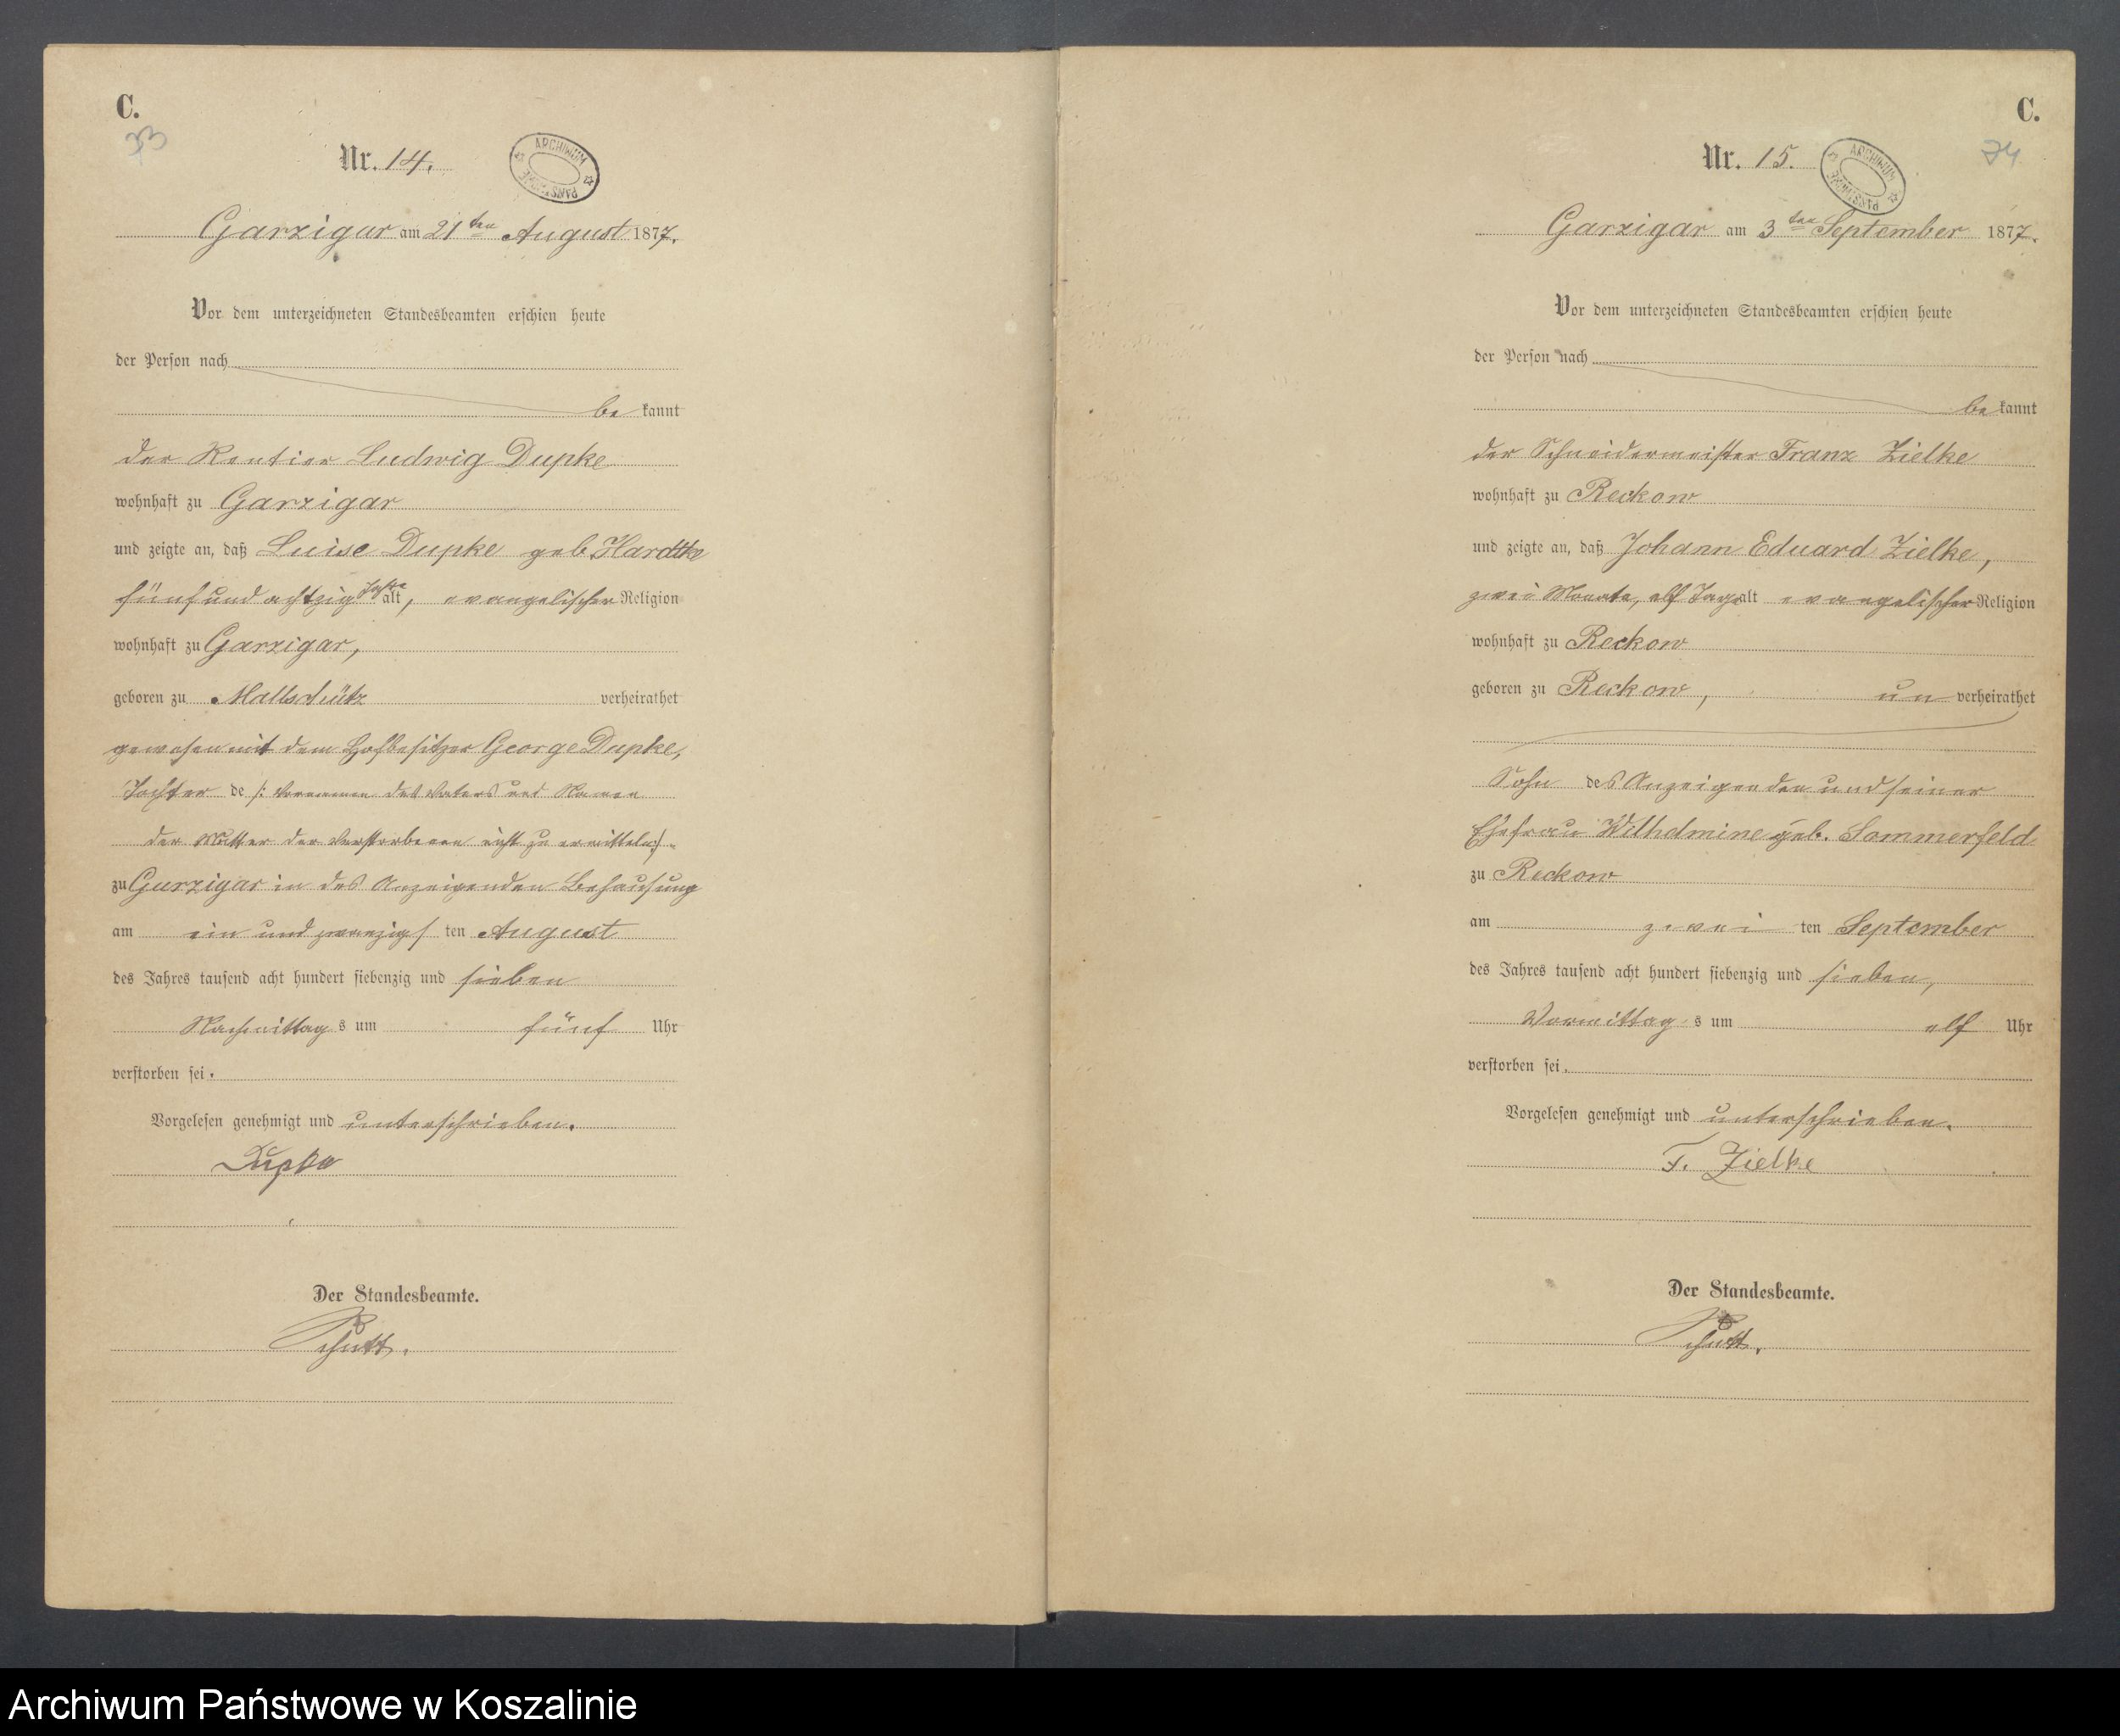 C.
33
Nr. 14.
ARCHIWUM PAŃSTWOWE
Garzigar am 21ten August 1877.
Vor dem unterzeichneten Standesbeamten erschien heute
der Person nach
bekannt
der Rentier Ludwig Dupke
wohnhaft zu Garzigar
und zeigte an, daß Luise Dupke geb. Hardtke
fünfundachtzig Jahre alt, evangelischer Religion
wohnhaft zu Garzigar,
geboren zu Mallschütz verheirathet
gewesen mit dem Hofbesitzer George Dupke,
Tochter de /: Vornamen des Vaters und Namen
der Mutter der Verstorbenen nicht zu ermitteln :/
zu Garzigar in des Anzeigenden Behausung
am ein und zwanzigs ten August
des Jahres tausend acht hundert siebenzig und sieben
Nachmittag s um fünf Uhr
verstorben sei.
Vorgelesen genehmigt und unterschrieben.
Dupke
Der Standesbeamte.
Schutt.
C.
74
Nr. 15.
ARCHIWUM PAŃSTWOWE
Garzigar am 3ten September 1877.
Vor dem unterzeichneten Standesbeamten erschien heute
der Person nach
bekannt
der Schneidermeister Franz Zielke
wohnhaft zu Reckow
und zeigte an, daß Johann Eduard Zielke,
zwei Monate, elf Tage alt evangelischer Religion
wohnhaft zu Reckow
geboren zu Reckow, unverheirathet
Sohn des Anzeigenden und seiner
Ehefrau Wilhelmine geb. Sommerfeld
zu Reckow
am zwei ten September
des Jahres tausend acht hundert siebenzig und sieben,
Vormittag s um elf Uhr
verstorben sei.
Vorgelesen genehmigt und unterschrieben.
F. Zielke
Der Standesbeamte.
Schutt.
Archiwum Państwowe w Koszalinie